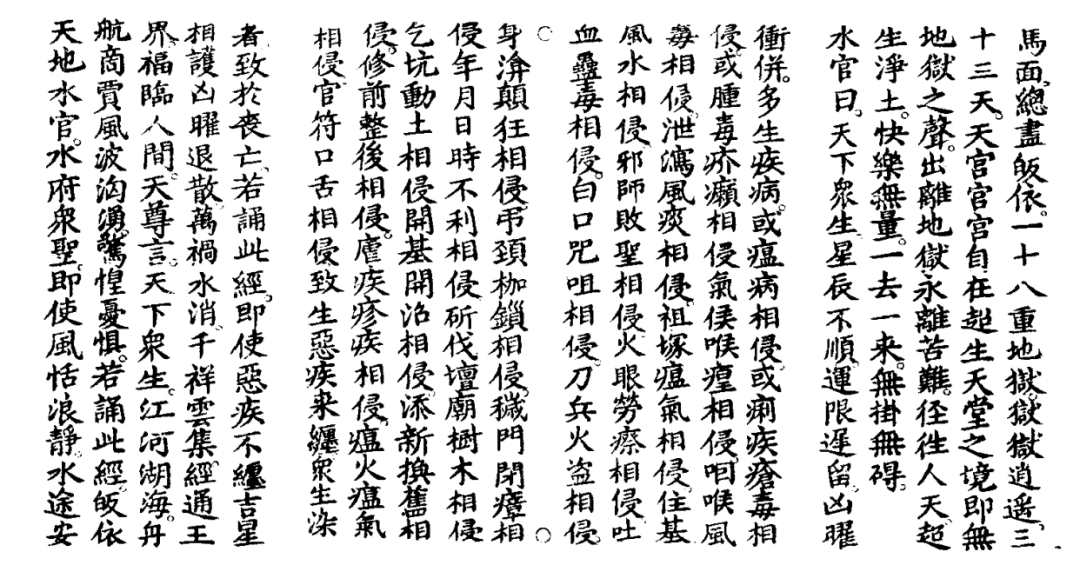 馬面。總盡皈依。一十八重地獄。獄獄逍遥。三
十三天。天宮宮宮自在。超生天堂之境。即無
地獄之聲。出離地獄。永離苦難。徑往人天。超
生淨土。快樂無量。一去一来。無掛無碍。
水官曰。天下眾生。星辰不順。運限遲留。凶曜
衝併。多生疾病。或瘟病相侵。或痢疾瘡毒相
侵。或腫毒疥癩相侵。氣侯喉瘽相侵。咽喉風
毒相侵。泄瀉風痰相侵。祖塚瘟氣相侵。住基
風水相侵。邪師敗聖相侵。火眼勞瘵相侵。吐
血蠱毒相侵。白口咒咀相侵。刀兵火盗相侵。
身渰顛狂相侵。弔頚枷鎖相侵。穢門閉癨相
侵。年月日時不利相侵。斫伐壇廟樹木相侵。
乞坑動土相侵。開基開沿相侵。添新換舊相
侵。修前整後相侵。瘧疾疹疾相侵。瘟火瘟氣
相侵。官符口舌相侵。致生惡疾。来纏眾生。染
者致於喪亡。若誦此經。即使惡疾不纏。吉星
相護。凶曜退散。萬禍水消。千祥雲集。經通王
界。福臨人間。天尊言。天下眾生。江河湖海。舟
航商賈。風波洶湧。驚惶憂惧。若誦此經。皈依
天地水官。水府眾聖。即使風恬浪靜。水途安